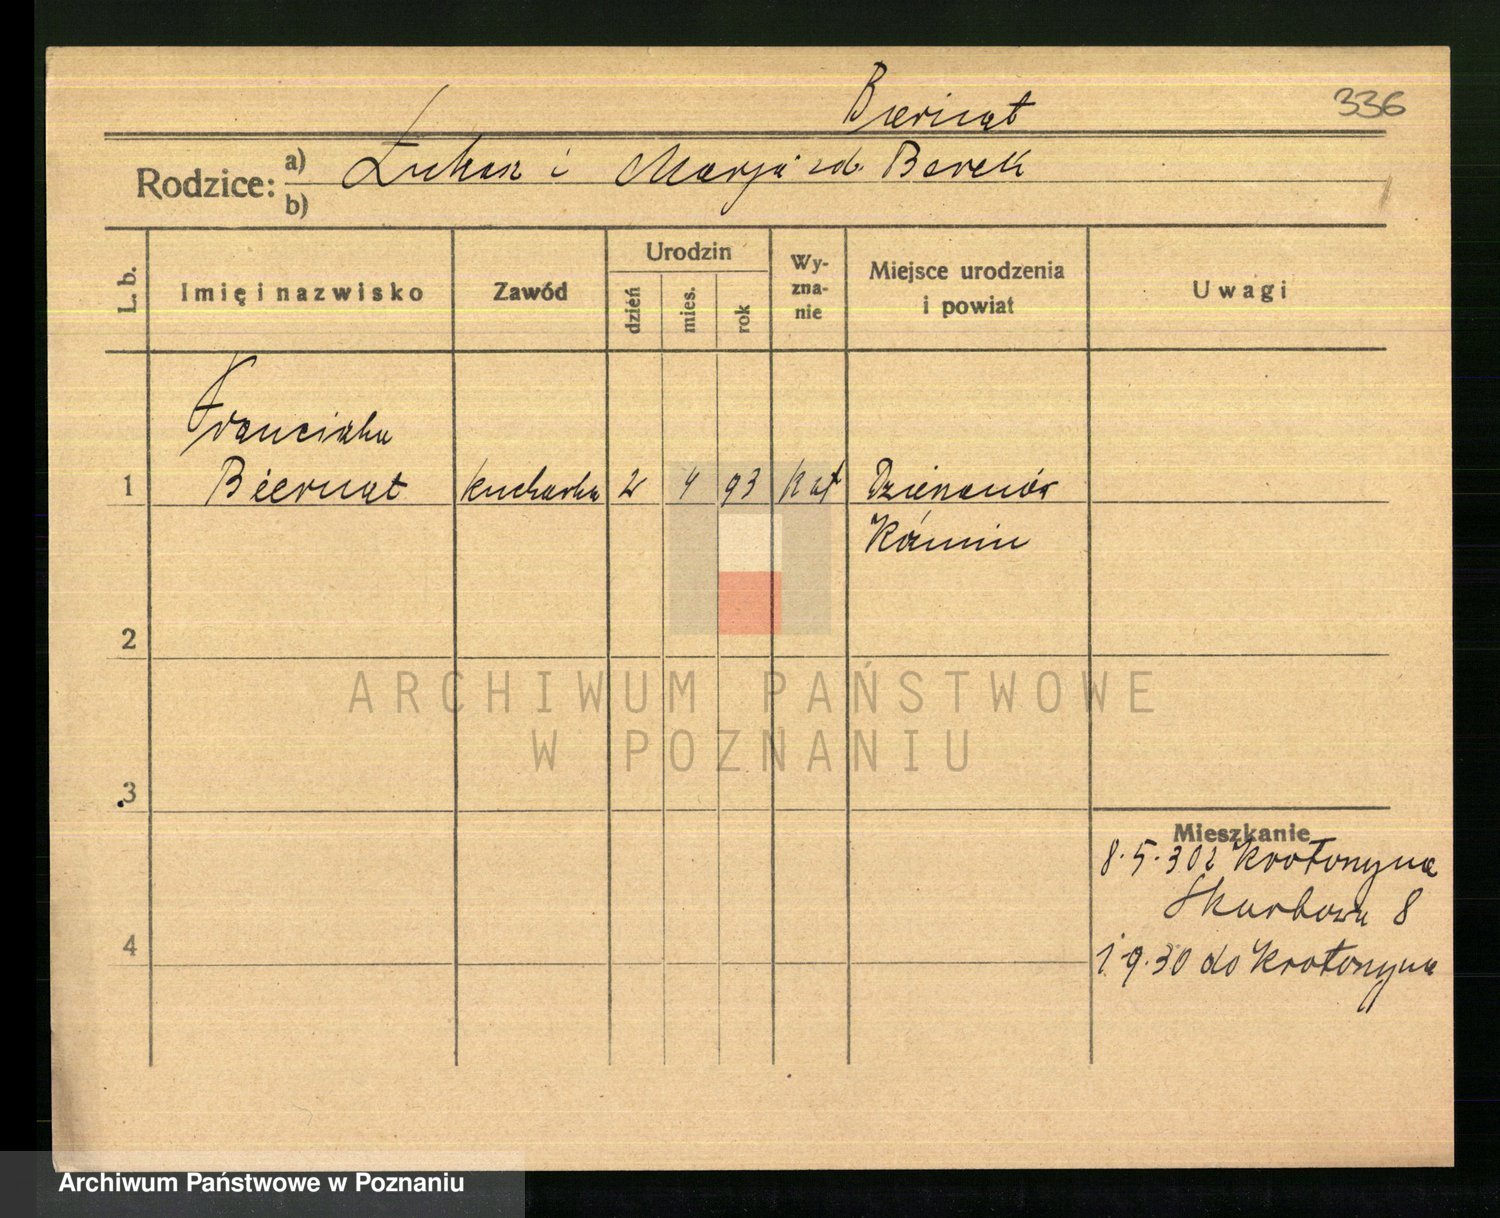 Biernat
336
Rodzice: a) Łukasz i Marja zd. Berek
b)
L. b.
Imię i nazwisko
Zawód
Urodzin
dzień
mies.
rok
Wy-
zna-
nie
Miejsce urodzenia
i powiat
Uwagi
Franciszka
1 Biernat kucharka 2 4 93 kat
Koźmin
2
ARCHIWUM PAŃSTWOWE
W POZNANIU
3
Mieszkanie
8.5.30 z Krotoszyna
Skarbowa 8
4
1.9.30 do Krotoszyna
Archiwum Państwowe w Poznaniu